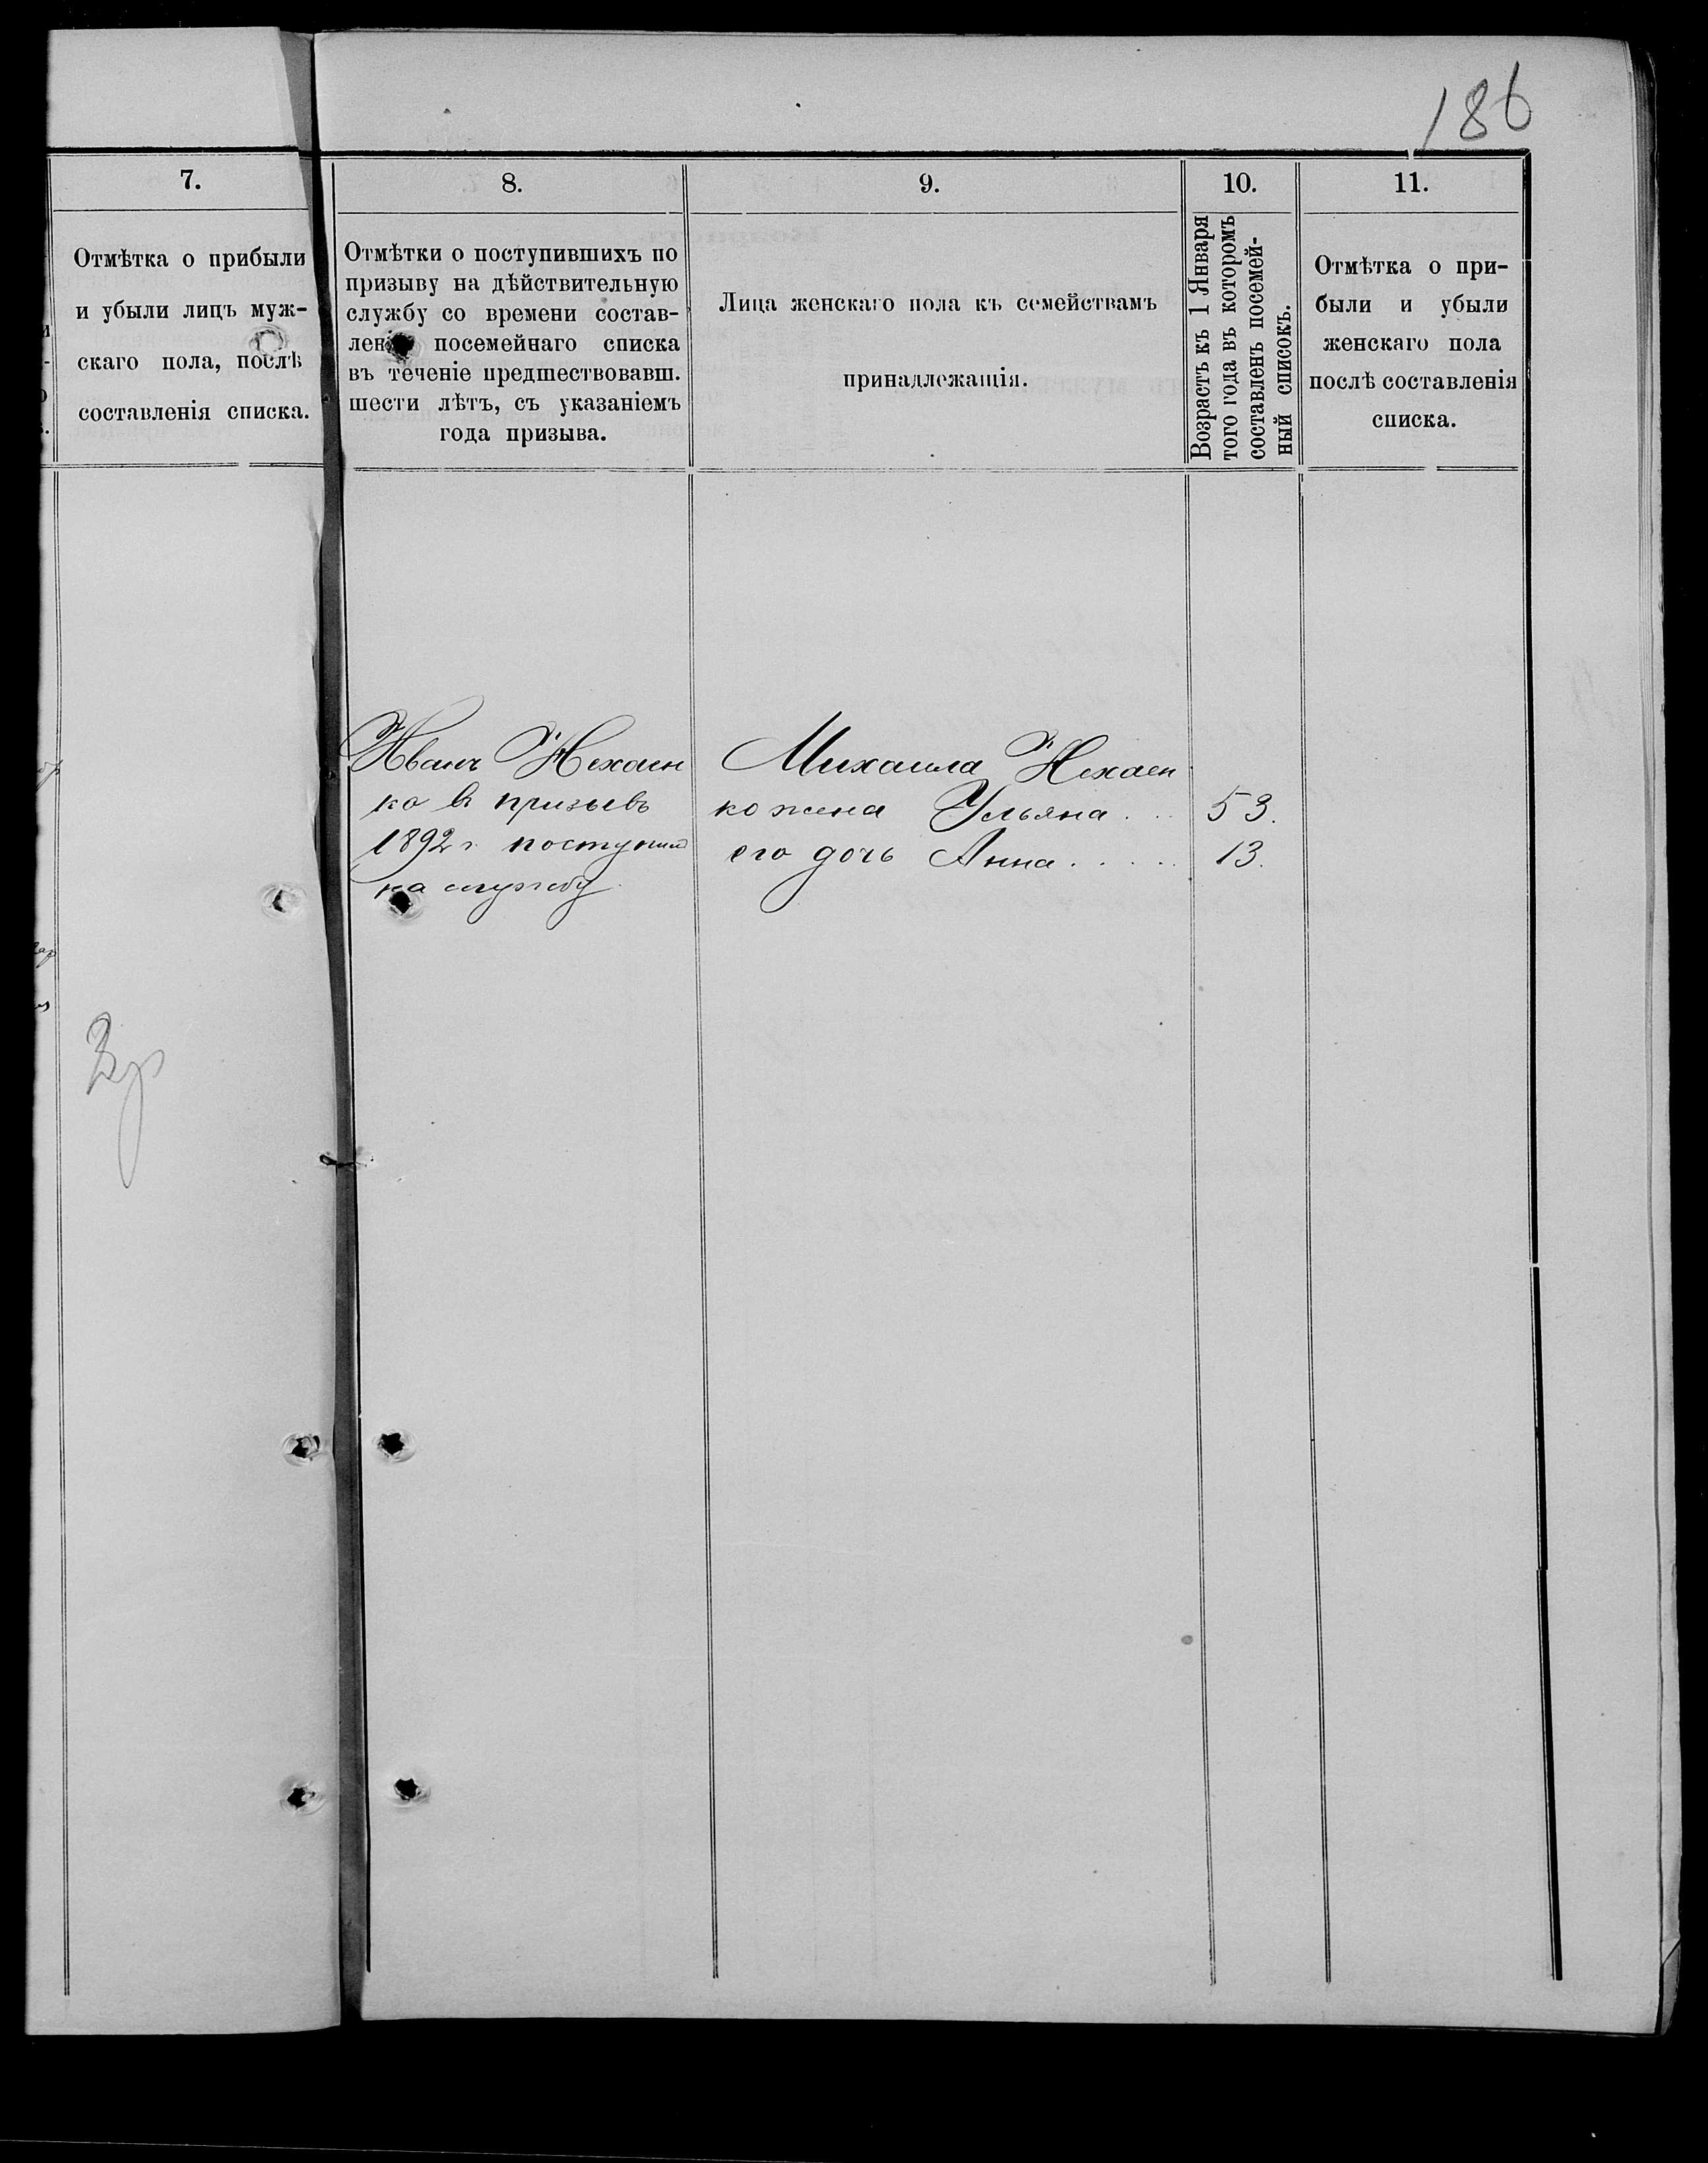 186
7.
Отмѣтка о прибыли
и убыли лицъ муж-
скаго пола, послѣ
составленія списка.
8.
Отмѣтки о поступившихъ по
призыву на дѣйствительную
службу со времени состав-
леніе посемейнаго списка
въ теченіе предшествовавш.
шести лѣтъ, съ указаніемъ
года призыва.
9.
Лица женскаго пола къ семействамъ
принадлежащія.
10.
Возрастъ къ 1 Января
того года въ которомъ
составленъ посемей-
ный списокъ.
11.
Отмѣтка о при-
были и убыли
женскаго пола
послѣ составленія
списка.
Иванъ Нехаен
ко въ призывъ
1892 г. поступилъ
на службу
Михаила Нехаен
ко жена Ульяна . . . 53.
его дочь Анна . . . . . 13.